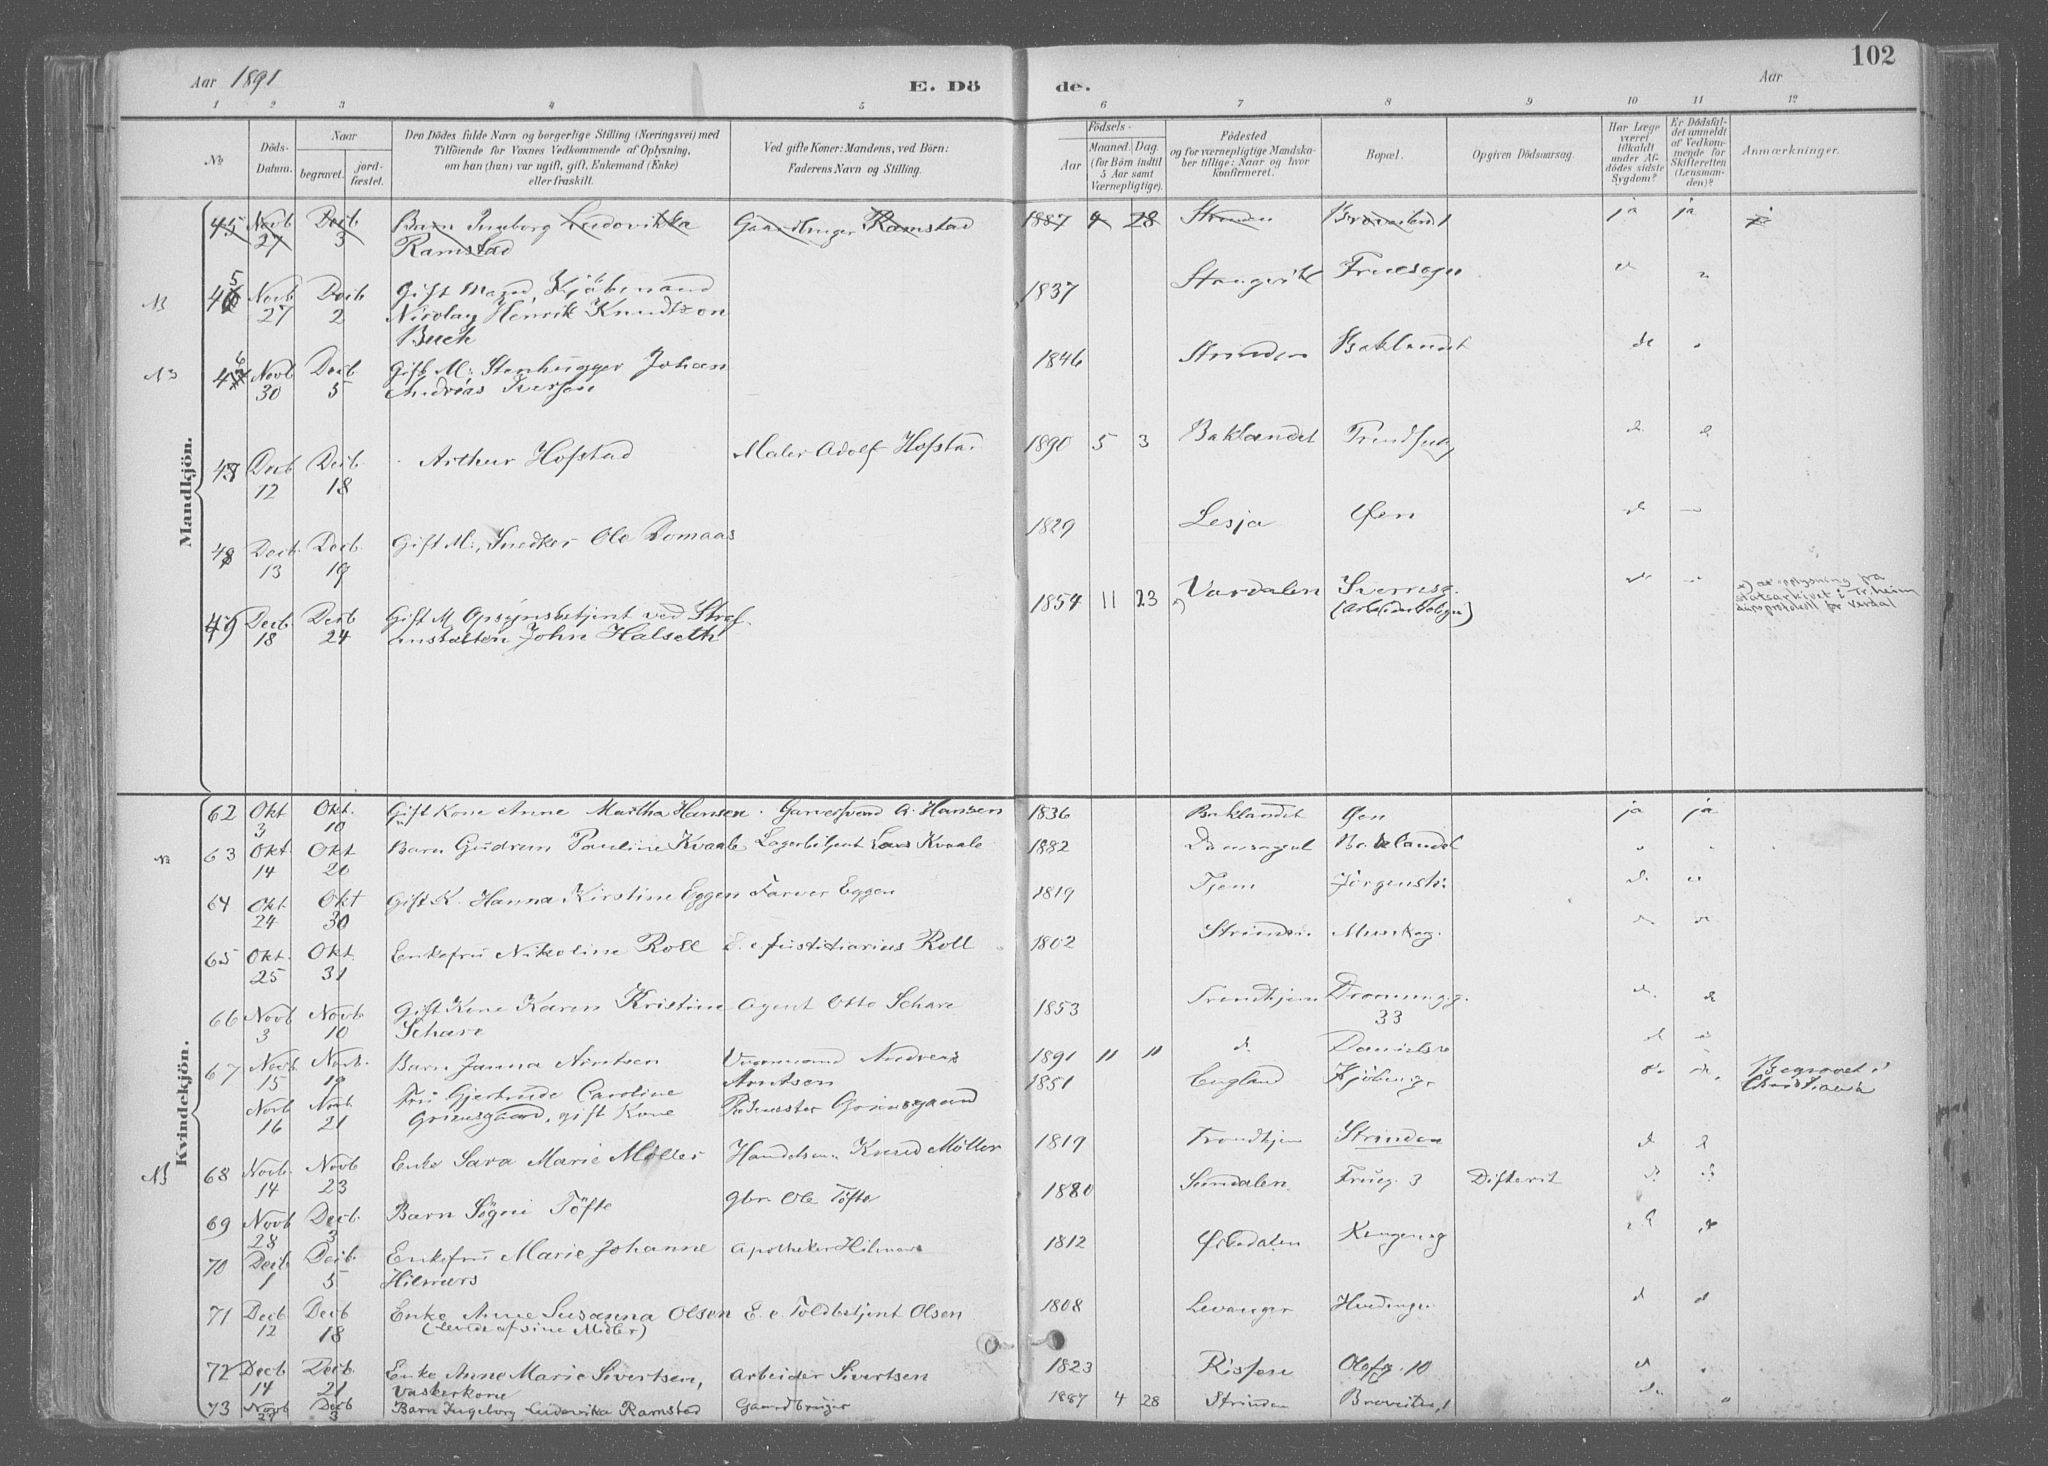 Aar 1891 E. Dö de. Aar 102
1 2 3 4 5 6 7 8 9 10 11 12
No
Döds-Datum.
Naar
begravet.
jord-fæstet.
Den Dödes fulde Navn og borgerlige Stilling (Næringsvei) med
Tilföiende for Voxnes Vedkommende af Oplysning,
om han (hun) var ugift, gift, Enkemand (Enke)
eller fraskilt.
Ved gifte Koner: Mandens, ved Börn:
Faderens Navn og Stilling.
Födsels-
Aar
Maaned. Dag.
(for Börn indtil
5 Aar samt
Værnepligtige).
Födested
og for værnepligtige Mandska-
ber tillige: Naar og hvor
konfirmeret.
Bopæl.
Opgiven Dödsaarsag.
Har Læge
været
tilkaldt
under Af-
dödes sidste
Sygdom?
Er Dödsfal-
det anmeldt
af Vedkom-
mende for
Skifteretten
(Lensman-
den)?
Anmærkninger.
Mandkjön.
45 Novb 27 Decb 3 Barn Ingeborg Ludovikka Gaardbruger Ramstad 1887 4 28 Strinden ja ja
Ramstad
45 Novb 27 Decb 2 Gift Mand, Kjöbmand 1837 Stangvik Fruesogn
Nicolay Henrik Knudtzon
Buch
46 Novb 30 Decb 5 Gift M: Stenhugger Johan 1846 Strinden Baklandet
Andreas Iversen
47 Decb 12 Decb 18 Arthur Hofstad Maler Adolf Hofstad 1890 5 3 Baklandet
48 Decb 13 Decb 19 Gift M:, Snedker Ole Domaas 1829 Lesja Øen
49 Decb 18 Decb 24 Gift M Opsynsbetjent ved Straf- 1854 11 23 Værdalen
anstalten John Halseth
x) se oplysning fra
statsarkivet i Tr.heim
Kvindekjön.
62 Okt 3 Okt. 10 Gift Kone Anne Martha Hansen Garversvend A. Hansen 1836 Baklandet Øen ja ja
63 Okt. 14 Okt 20 Barn Gudrun Pauline Kvaale Lagerbetjent Lars Kvaale 1882 Baklandet
64 Okt. 24 Okt 30 Gift K. Hanna Kirstine Eggen Farver Eggen 1819
65 Okt. 25 Okt. 31 Enkefru Nikoline Roll E. e. justitiarius Roll 1802 Strinden Munkeg.
66 Novb 3 Novb. 10 Gift Kone Karen Kristine Agent Otto Schare 1853 Trondhjem Dronningg. 33
Schare
67 Novb 15 Novb. 19 Barn Janna Arntsen Vognmand Andreas 1891 11 11 d.
Arntsen
Novb 16 Novb 21 Fru Gjertrude Caroline 1851 England
Grimsgaard, gift Kone Grimsgaard
Begravet i
Christiania
68 Novb. 14 Novb 23 Enke Sara Marie Möller Handelsm. Knud Möller 1819 Trondhjem Strinden
69 Novb 28 Decb. 3 Barn Sögni Töfte gbr. Ole Töfte 1880 Sundalen Frueg. 3 Difterit
70 Decb 1 Decb. 5 Enkefru Marie Johanne Apotheker Hilmars 1812 Kongensg
Hilmars
71 Decb 12 Decb 18 Enke Anne Susanna Olsen E. e. Toldbetjent Olsen 1808 Levanger
(levde af sine Midler)
72 Decb 14 Decb. 21 Enke Anne Marie Sivertsen, Arbeider Sivertsen 1823 Rissen Olafg. 10
Vaskerkone
73 Novb 27 Decb 3 Barn Ingeborg Ludovika Ramstad Gaardbruger 1887 4 28 Strinden